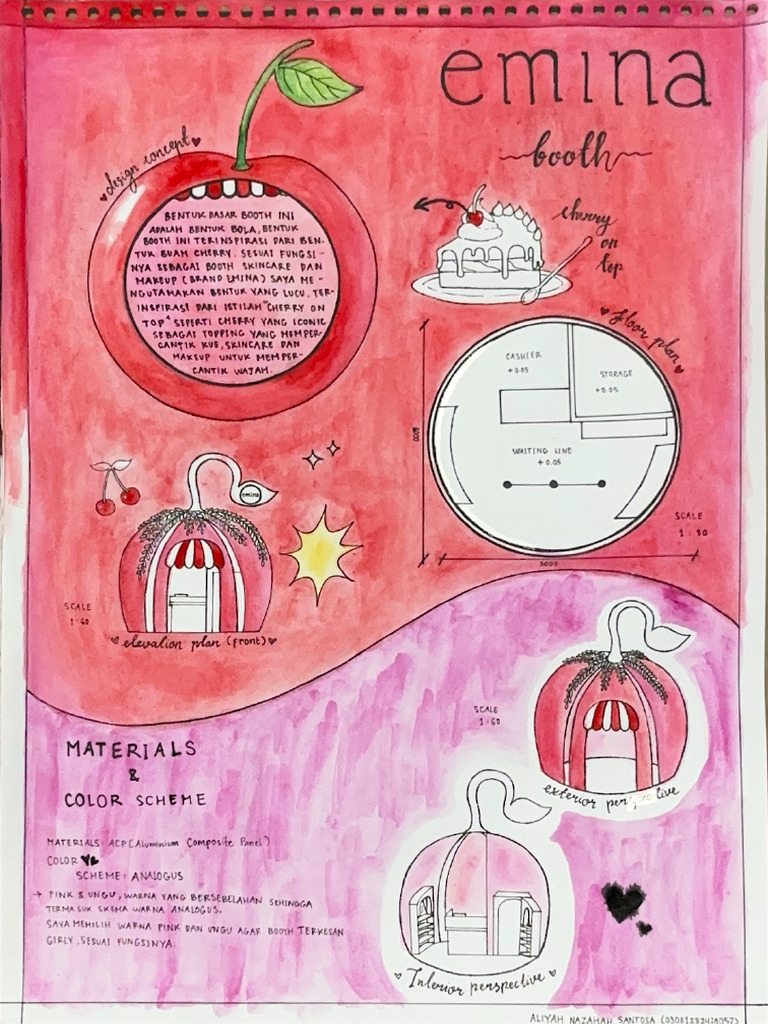 emina
booth
design concept
BENTUK DASAR BOOTH INI
ADALAH BENTUK BOLA, BENTUK
BOOTH INI TERINSPIRASI DARI BEN-
TUK BUAH CHERRY. SESUAI FUNGSI-
NYA SEBAGAI BOOTH SKINCARE DAN
MAKEUP (BRAND EMINA) SAYA ME-
NGUTAMAKAN BENTUK YANG LUCU, TER-
INSPIRASI DARI ISTILAH "CHERRY ON
TOP" SEPERTI CHERRY YANG ICONIC
SEBAGAI TOPPING YANG MEMPER-
CANTIK KUE, SKINCARE DAN
MAKEUP UNTUK MEMPER-
CANTIK WAJAH.
cherry
on
top
floor plan
CASHIER
+0.05
STORAGE
+0.05
WAITING LINE
+0.05
3000
3000
SCALE
1:30
emina
SCALE
1:60
elevation plan (front)
SCALE
1:60
exterior perspective
MATERIALS
&
COLOR SCHEME
MATERIALS: ACP (Aluminium Composite Panel)
COLOR
SCHEME: ANALOGUS
→ PINK & UNGU, WARNA YANG BERSEBELAHAN SEHINGGA
TERMASUK SKEMA WARNA ANALOGUS.
SAYA MEMILIH WARNA PINK DAN UNGU AGAR BOOTH TERKESAN
GIRLY, SESUAI FUNGSINYA.
Interior perspective
ALIYAH NAZAHAH SANTOSA